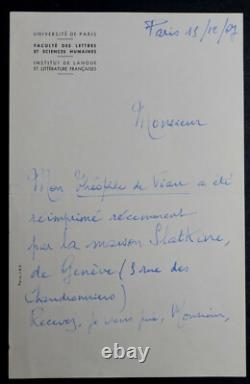 UNIVERSITÉ DE PARIS
FACULTÉ DES LETTRES
ET SCIENCES HUMAINES
INSTITUT DE LANGUE
ET LITTÉRATURE FRANÇAISES
Paris 15/12/67
Monsieur
Mon Théophile de Viau a été
réimprimé récemment
par la maison Slatkine,
de Genève (5 rue des
Chaudronniers)
Recevez, je vous prie, Monsieur,